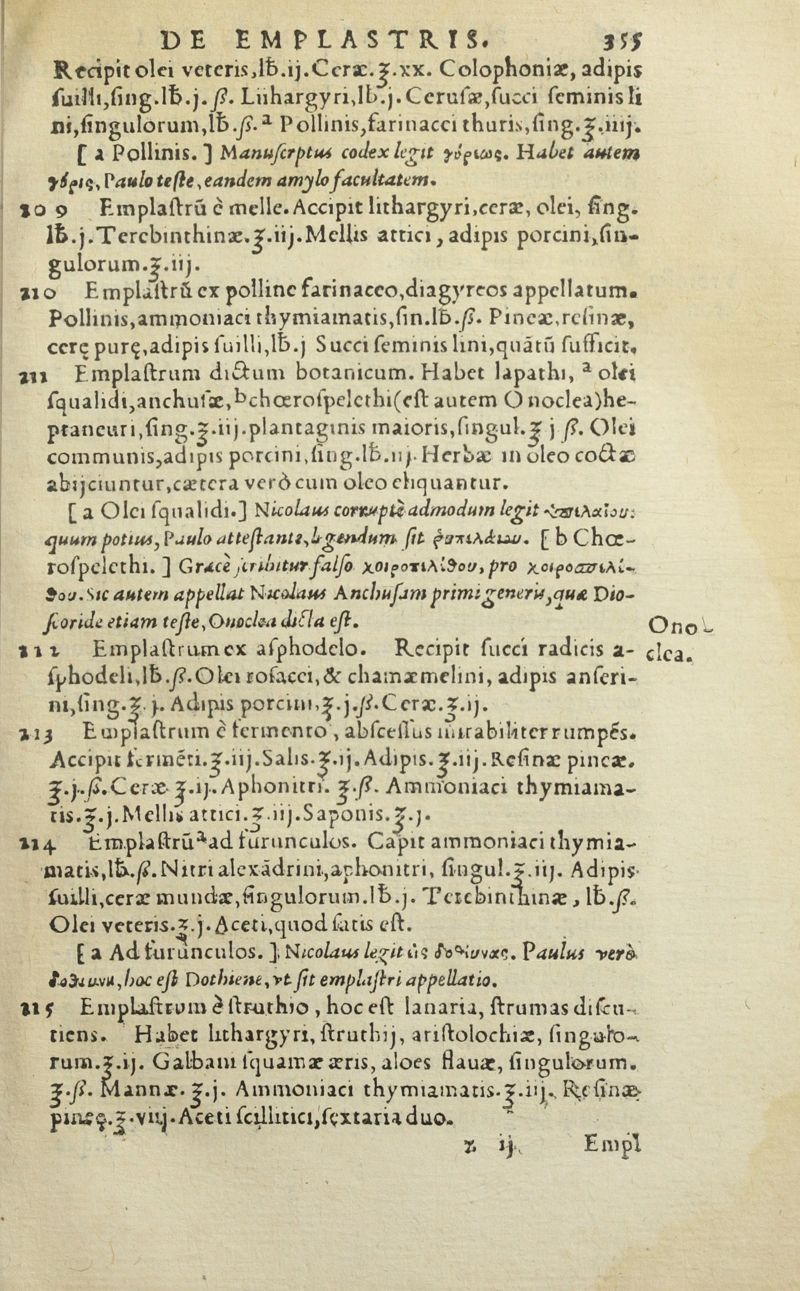 DE EMPLASTRIS. 355
Recipit olei veteris,lƀ.ij.Ceræ.℥.xx. Colophoniæ, adipis
ſuilli,ſing.lƀ.j.ß. Lithargyri,lƀ.j.Ceruſæ,ſucci ſeminis li
ni,ſingulorum,lƀ.ß.ª Pollinis,farinacei thuris,ſing.℥.iiij.
[ a Pollinis. ] Manuſcrptus codex legit γύρεως. Habet autem
γύρις, Paulo teſte, eandem amylo facultatem.
209 Emplaſtrũ è melle. Accipit lithargyri,ceræ, olei, ſing.
lƀ.j.Terebinthinæ.℥.iij.Mellis attici, adipis porcini,ſin-
gulorum.℥.iij.
210 Emplaſtrũ ex polline farinaceo,diagyreos appellatum.
Pollinis,ammoniaci thymiamatis,ſin.lƀ.ß. Pineæ,reſinæ,
cerę purę,adipis ſuilli,lƀ.j Succi ſeminis lini,quãtũ ſufficit.
211 Emplaſtrum dictum botanicum. Habet lapathi, ª olei
ſqualidi,anchuſæ,ᵇchœroſpelethi(eſt autem Onoclea)he-
ptaneuri,ſing.℥.iij.plantaginis maioris,ſingul.℥ j ß. Olei
communis,adipis porcini,ſing.lƀ.iij. Herbæ in oleo coctæ
abijciuntur,cætera verò cum oleo eliquantur.
[ a Olei ſqualidi.] Nicolaus corruptè admodum legit
quum potius, Paulo atteſtante, legendum ſit [ b Chœ-
roſpelethi. ] Græcè ſcribitur falſo χοιροπιλίθου, pro χοιροσπελέ-
θου. Sic autem appellat Nicolaus Anchuſam primi generis, quæ Dio-
ſcoride etiam teſte, Onoclea dicta eſt.
Ono-
clea.
212 Emplaſtrum ex aſphodelo. Recipit ſucci radicis a-
ſphodeli,lƀ.ß.Olei roſacei,& chamæmelini, adipis anſeri-
ni,ſing.℥.j. Adipis porcini,℥.j.ß.Ceræ.℥.ij.
213 Emplaſtrum è fermento, abſceſſus mirabiliter rumpẽs.
Accipit fermẽti.℥.iij.Salis.℥.ij.Adipis.℥.iij.Reſinæ pineæ.
℥.j.ß.Ceræ.℥.ij.Aphonitri.℥.ß. Ammoniaci thymiama-
tis.℥.j.Mellis attici.℥.iij.Saponis.℥.j.
214 Emplaſtrũªad furunculos. Capit ammoniaci thymia-
matis,lƀ.ß.Nitri alexãdrini,aphonitri, ſingul.℥.iij. Adipis
ſuilli,ceræ mundæ,ſingulorum.lƀ.j. Terebinthinæ, lƀ.ß.
Olei veteris.℥.j.Aceti,quod ſatis eſt.
[ a Ad furunculos. ] Nicolaus legit Paulus verò
hoc eſt Dothiene, vt ſit emplaſtri appellatio.
215 Emplaſtrum è ſtruthio, hoc eſt lanaria, ſtrumas diſcu-
tiens. Habet lithargyri, ſtruthij, ariſtolochiæ, ſingulo-
rum.℥.ij. Galbani ſquamæ æris, aloes flauæ, ſingulorum.
℥.ß. Mannæ.℥.j. Ammoniaci thymiamatis.℥.iij. Reſinæ
pineę.℥.viij.Aceti ſcillitici,ſextaria duo.
z ij Empl